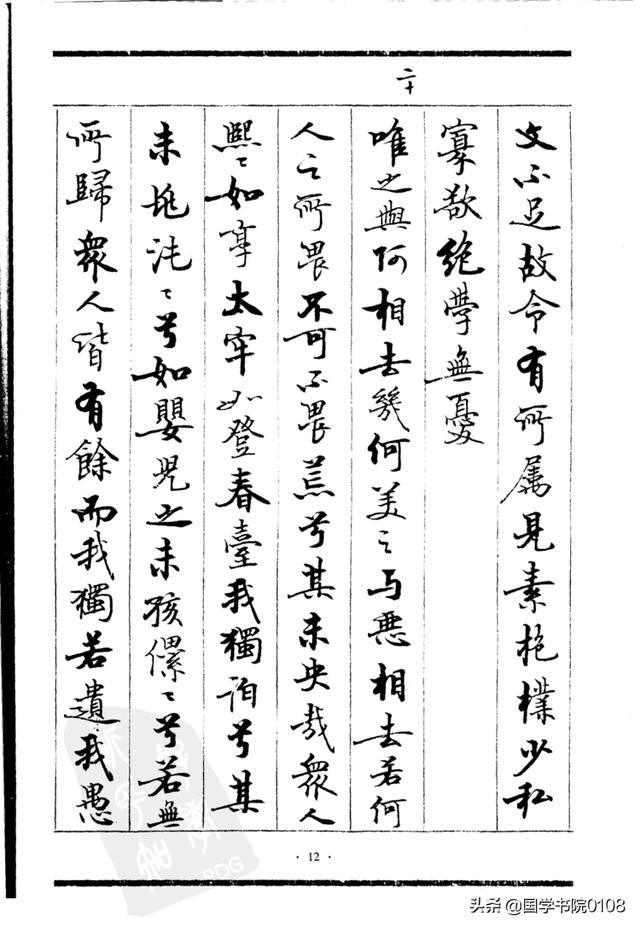 二十
文不足故令有所属見素抱樸少私
寡欲絶學無憂
唯之與阿相去幾何美之与惡相去若何
人之所畏不可不畏荒兮其未央哉衆人
熙〻如享太牢如登春臺我獨泊兮其
未兆沌〻兮如嬰児之未孩儽〻兮若無
所歸衆人皆有餘而我獨若遺我愚
·12·
PDG
头条@国学书院0108